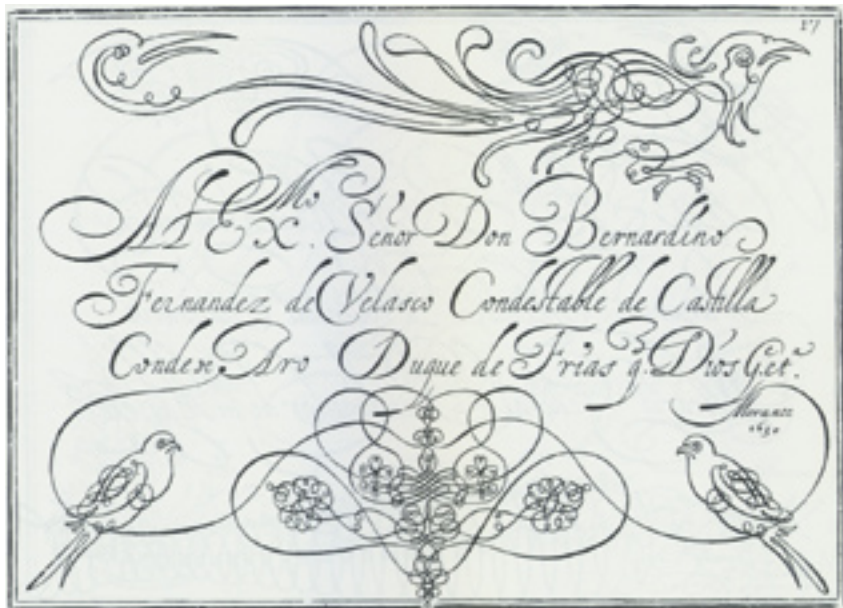 17
Al Ex.mo Señor Don Bernardino
Fernandez de Velasco Condestable de Castilla
Conde de Aro Duque de Frias q. Dios G.et.